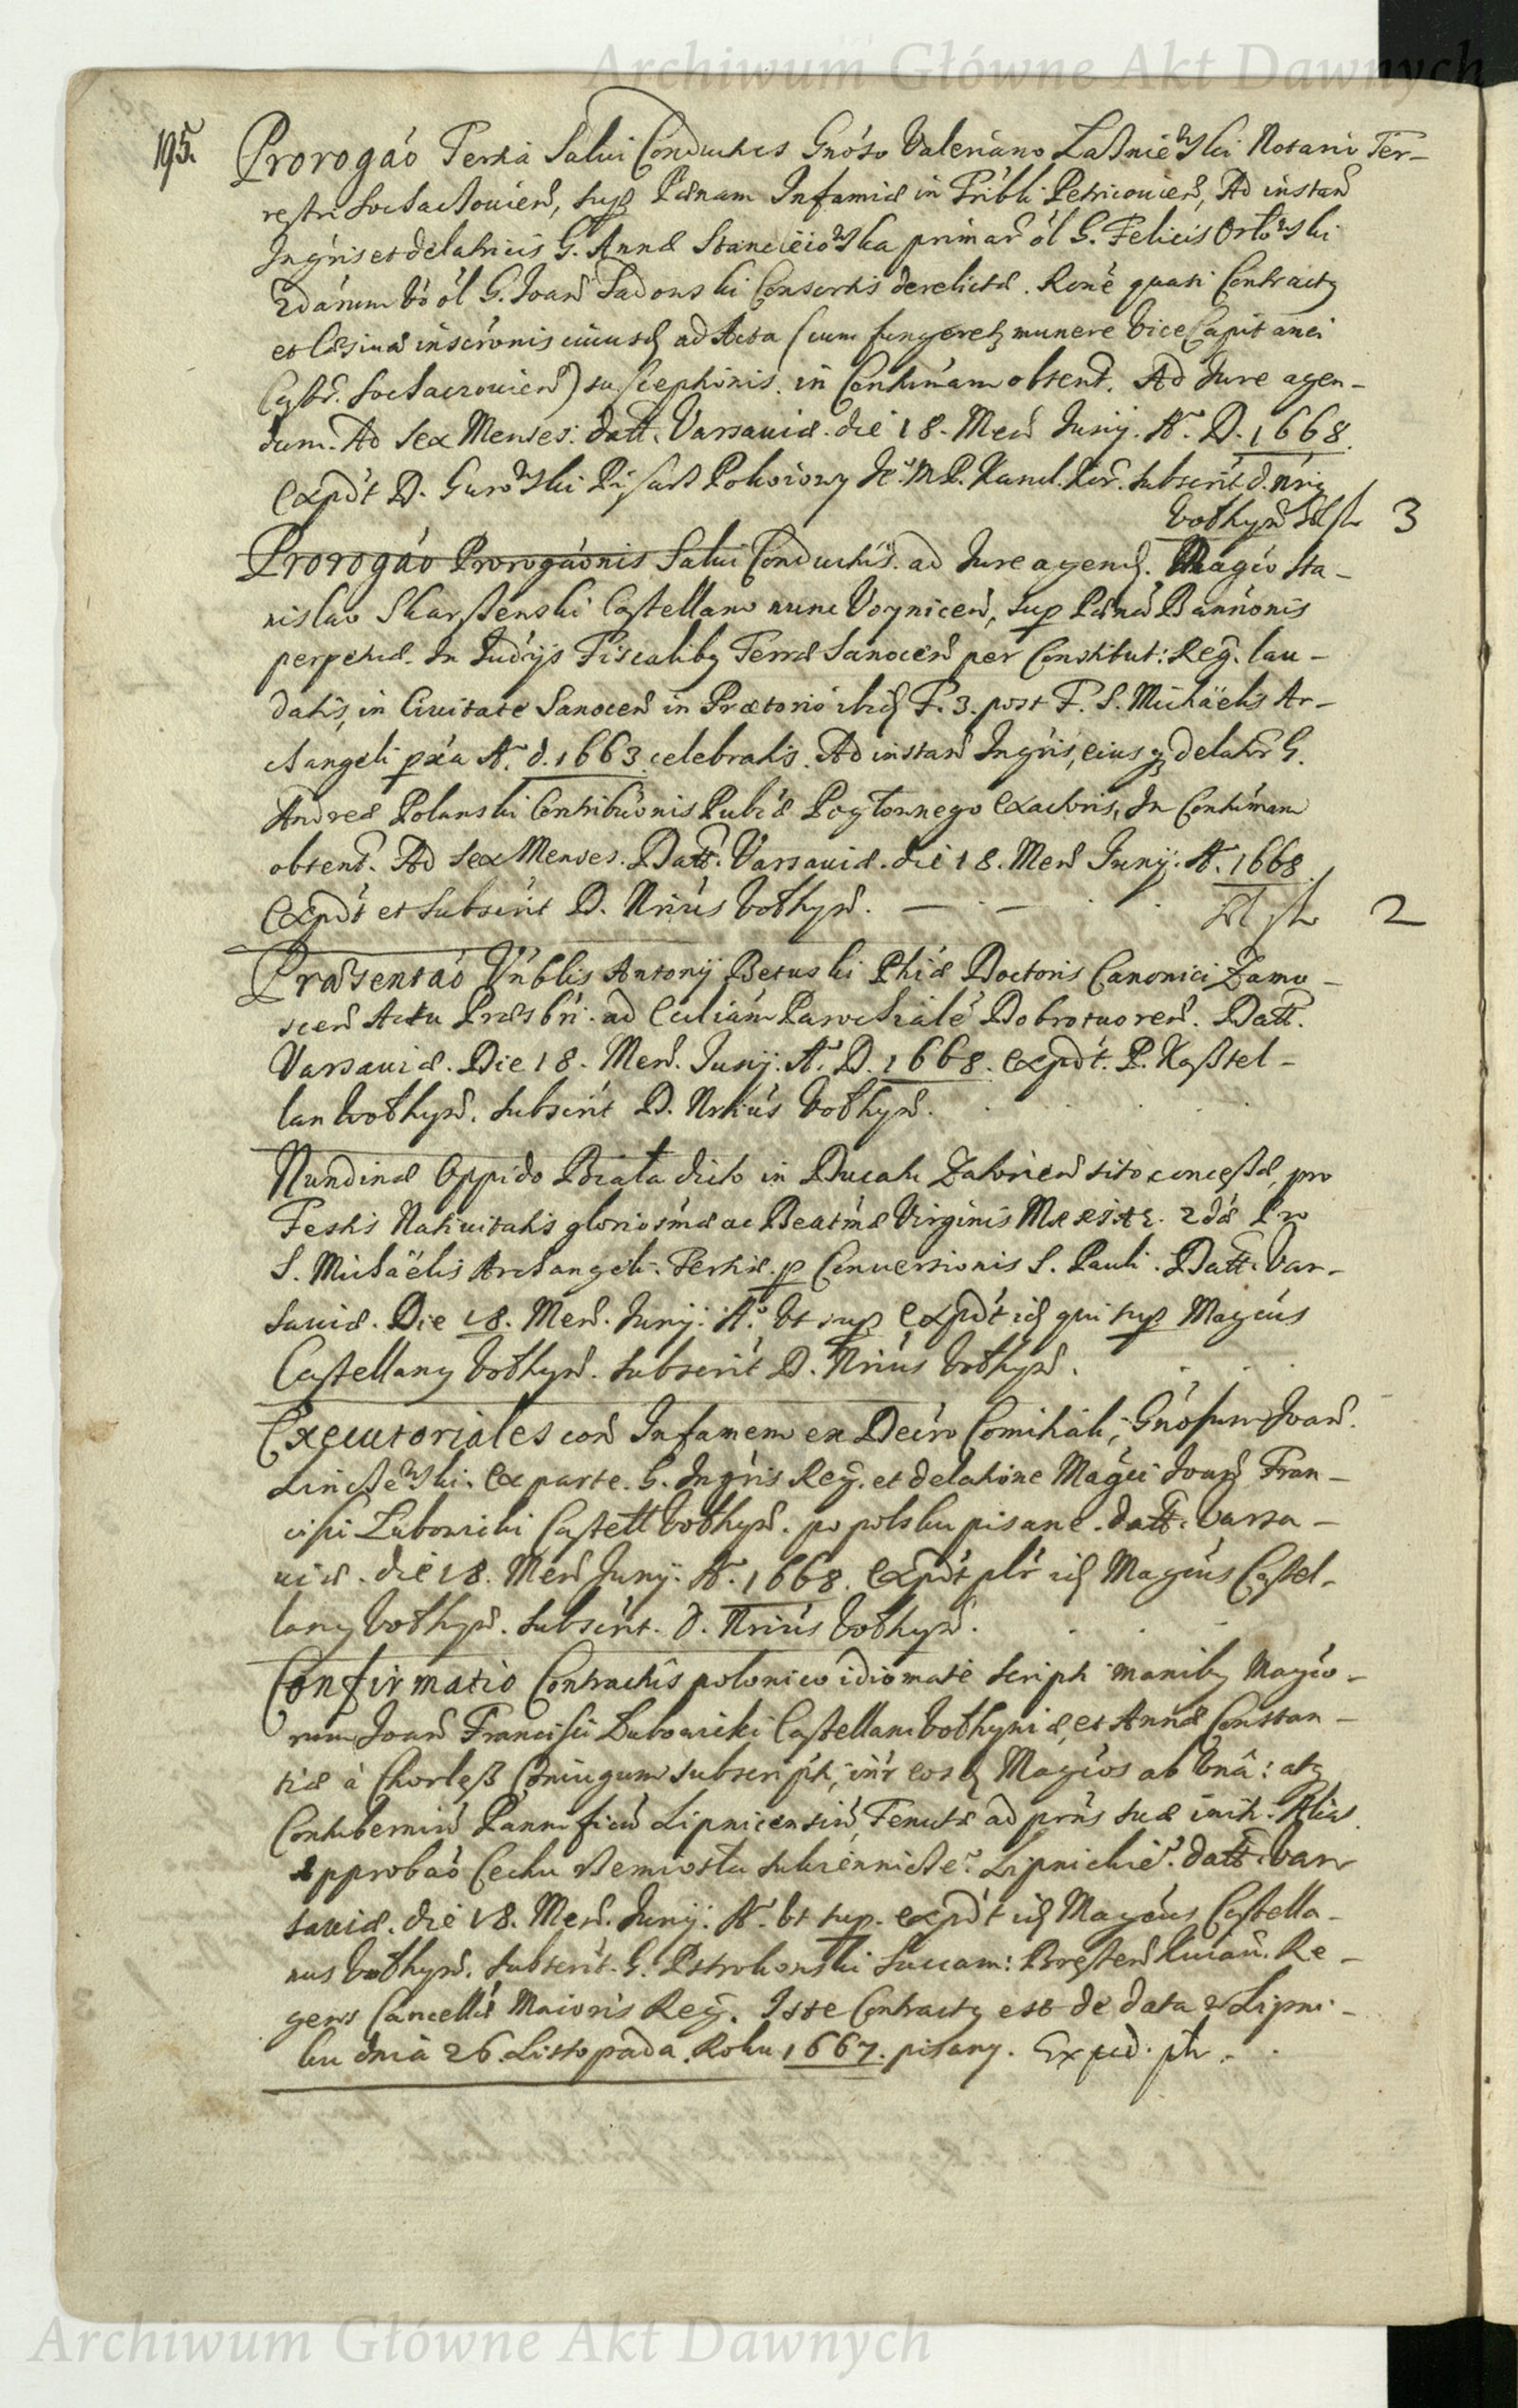 Archiwum Główne Akt Dawnych
195.
Prorogáo Tertia Salui Conductus Gnóso Valeriano Laßniewski Notario Ter-
restri Sochaczouien, sup Pænam Infamiæ in Tribli Petricouien, Ad instan
Ingris et delatricis G. Annæ Stanciëiowska primar ol G. Felicis Orłowski
2dárum vó ól G. Joan Sadowski Consortis derelictæ. Roné quasi Contractq
et læsiuæ inscrónis cuiusq ad Acta (cum fungeretq munere Vice Capitanei
Castr. Sochaczouien) susceptionis in Contumam obtent. Ad Jure agen-
dum. Ad Sex Menses. Datt. Varsauiæ. die 18. Men Junij. A. D. 1668.
Expdt D. Gurowski Pisarz Pokoiowy Je. M P. Kancl. Kor. Subscrit d. nriq
Vołhyn
3
Prorogáo Prorogáonis Salui Conductus ad Jure agend. Magco Sta-
nislao Skarszewski Castellano nunc Voynicen, sup Pæna Bannonis
perpetuæ. In Judijs Fiscalibq Terræ Sanocen per Constitut: Reg. lau-
datis, in Ciuitate Sanocen in Prætorio ibid F. 3. post F. S. Michäelis Ar-
changeli pxa A. d. 1663. celebratis. Ad instan Ingris, eiusq delator G.
Andreæ Polanski Contributionis Publcæ Pogłownego Exactoris, In Contumam
obtent. Ad Sex Menses. Datt. Varsauiæ. die 18. Men Junij. A. 1668.
Expdt et Subscrit D. Nrius Vołhyn.
2
Præsentáo Vnblis Antonij Betuski Phiæ Doctoris Canonici Zamo-
scen Actu Præsbri. ad Ecclíam Parochialé Dobrotuoren. Datt.
Varsauiæ. Die 18. Men. Junij. A. D. 1668. Expdt. P. Kasztel-
lan Wołhyn. Subscrit D. Nrius Vołhyn.
Nundinæ Oppido Biała dicto in Ducatu Zatorien sito concessæ, pro
Festis Natiuitatis gloriosmæ ac Beatmæ Virginis MARIAE. 2dæ Pro
S. Michäelis Archangeli. Tertiæ. p Conuersionis S. Pauli. Datt. Var-
sauiæ. Die 18. Men. Junij. A. Vt sup Expdt id qui sup Magcus
Castellanq Vołhyn. Subscrit D. Nrius Vołhyn.
Executoriales con Infamem ex Decro Comitiali, Gnósum Joan.
Linchewski. Ex parte. G. Ingris Reg. et delatione Magci Joan Fran-
cisci Lubowicki Castell Vołhyn. po polsku pisane. datt. Varsa-
uiæ. die 18. Men Junij. A. 1668. Expdt plr id Magcus Castel-
lanq Vołhyn. Subscrit. D. Nrius Vołhyn.
Confirmatio Contractûs polonico idiomate script manibq Magco-
rum Joan Francisci Lubowicki Castellani Vołhyniæ, et Annæ Constan-
tiæ à Chorleß Coniugum subscripti, intr eosd Magcos ab Vnâ: atq
Contubernium Pannificum Lipnicensium, Tenutæ ad præns suæ Alias
Approbáo Cechu rzemiosła sukienniche Lipnickie. datt. Var
sauiæ. die 18. Men. Junij. A. Vt sup. Expdt id Magcus Castella-
nus Vołhyn. Subscrit. G. Pstrokonski Succam: Brzesten Kuiau. Re-
gens Cancellæ Maioris Reg. Iste Contractq est de data w Lipni-
ku dnia 26. Listopada. Roku 1667. pisany. Exped. plr.
Archiwum Główne Akt Dawnych